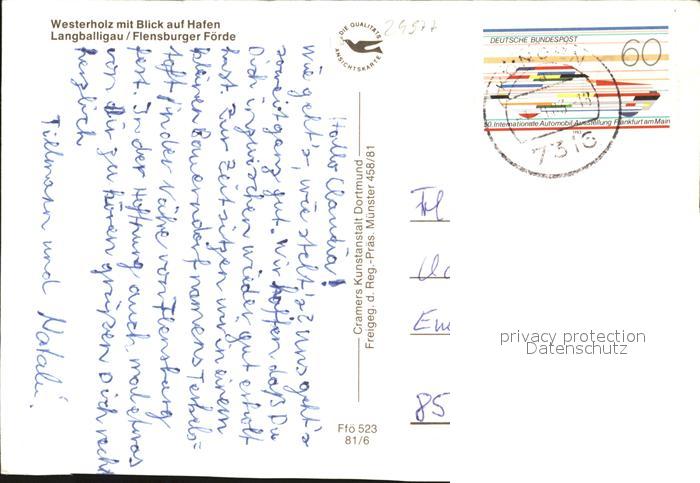 Westerholz mit Blick auf Hafen
Langballigau / Flensburger Förde
DIE QUALITÄTS
ANSICHTSKARTE
29577
DEUTSCHE BUNDESPOST
60
50. Internationale Automobil Ausstellung Frankfurt am Main
7316
Hallo Claudia!
Wie geht's, wie steht's? Uns geht's
soweit ganz gut. Wir hoffen, daß Du
Dich inzwischen wieder gut erholt
hast. Zur Zeit sitzen wir in einem
kleinen Bauerndorf namens
in der Nähe von Flensburg
fest. In der Hoffnung auch mal etwas
von dir zu hören grüßen Dich recht
herzlich
Tillmann und Natalie.
Cramers Kunstanstalt Dortmund
Freigeg. d. Reg.-Präs. Münster 458/81
Ffö 523
81/6
85
privacy protection
Datenschutz